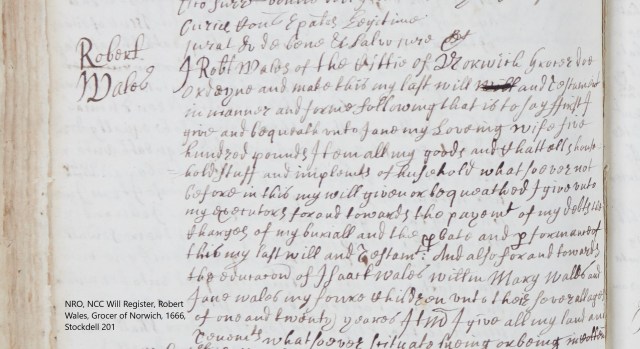 Curie Cons Epatus Legitime
jurat &c de bene &c Salvo jure &c
Robert
Wales
I Robt Wales of the Cittie of Norwich Grocer doe
Ordeyne and make this my last will and Testament
in manner and forme following that is to say ffirst I
give and bequeath unto Jane my Loveing wife five
hundred pounds Item all my goods and Chattells house-
hold stuff and implemts of household whatsoever not
before in this my will given or bequeathed I give unto
my executors for and towards the paymt of my debts the
Charges of my buriall and the pbate and pformance of
this my last will and Testamt: And also for and towards
the education of Isaack Wales Willm Mary Wales and
Jane Wales my foure Children unto their severall ages
of one and twenty yeares Itm I give all my land and
Tenemts whatsoever scituate lyeing or being in
NRO, NCC Will Register, Robert
Wales, Grocer of Norwich, 1666,
Stockdell 201